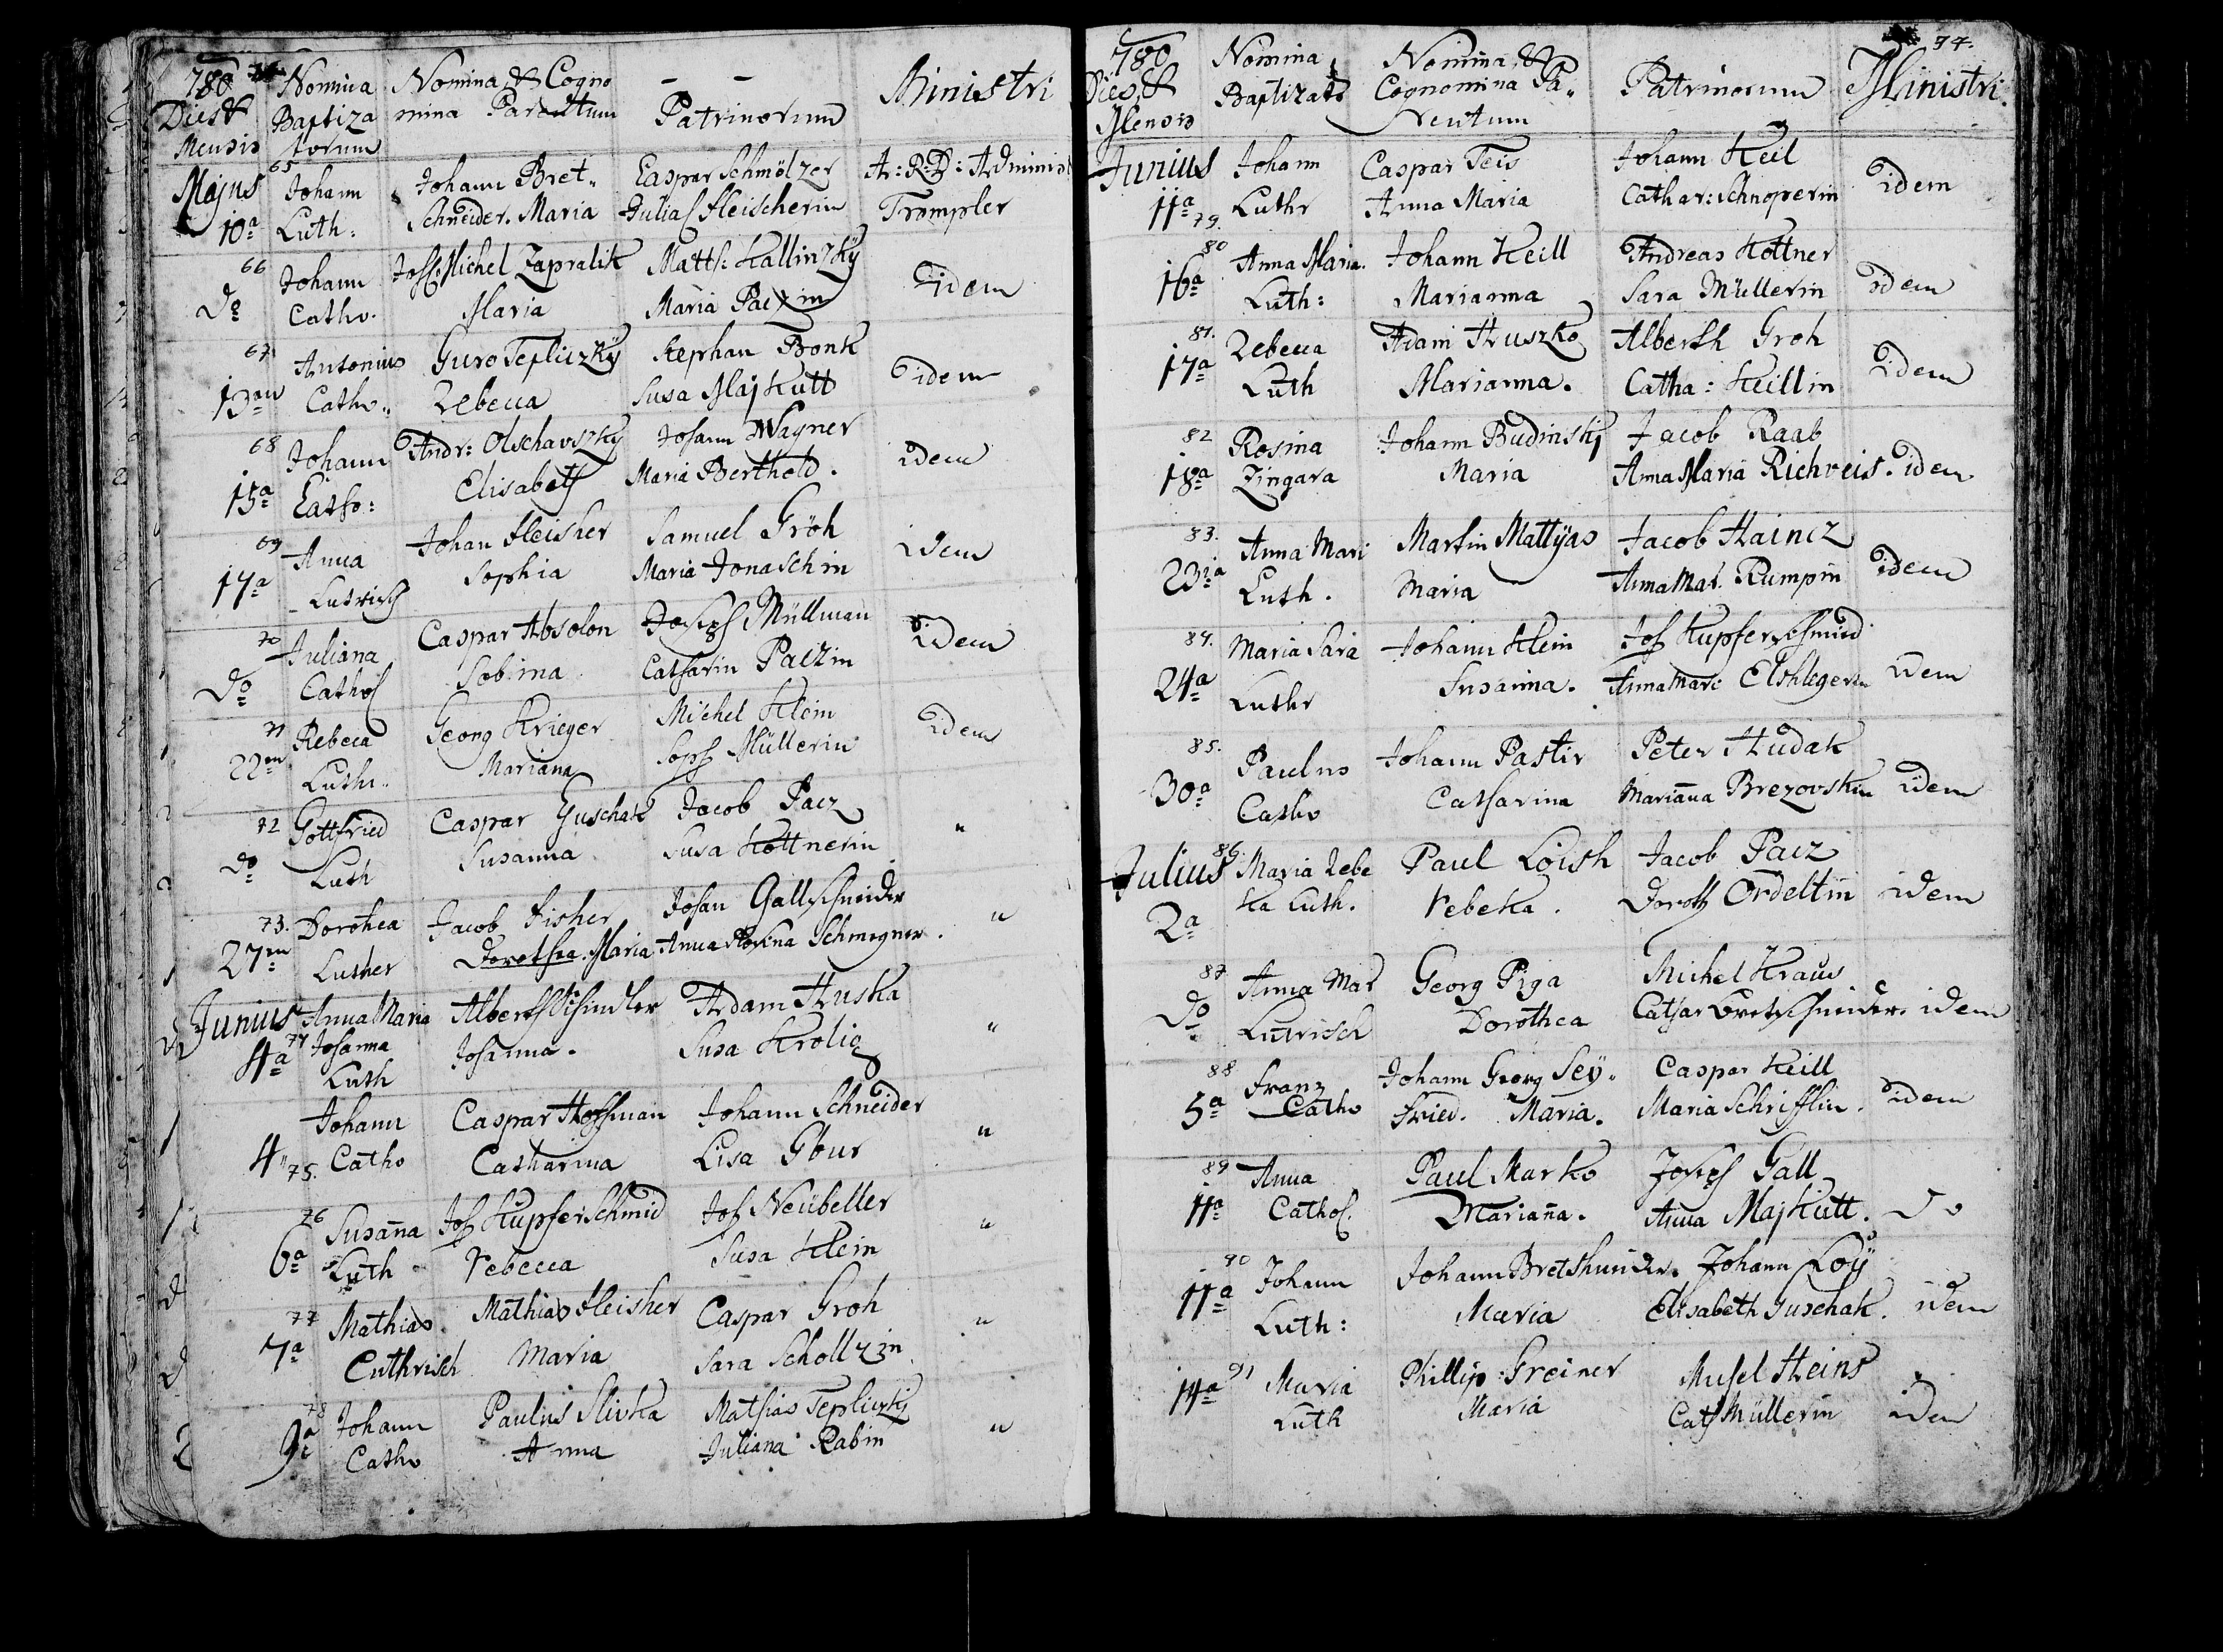 780
Dies &
Mensis
Nomina
Baptiza
torum
Nomina & Cogno
mina Parentum
Patrinorum
Ministri
Majus
10a
65
Johann
Luth:
Johann Bret„
Schneider. Maria
Caspar Schmölzer
Julia Fleischerin
A: R: D: Adminis
Trompler
66
Do
Johann
Catho.
Joh: Michel Zapralik
Maria
Matth: Kallinzky
Maria Paczin
idem
67
13an
Antonius
Catho„
Giuro Tepliczky
Rebecca
Stephan Bonk
Susa Majkutt
idem
68
15a
Johann
Catho:
Andr: Olschavszky
Elisabeth
Johann Wagner
Maria Berthold.
idem
69
17a
Anna
Lutrisch
Johan Fleisher
Sophia
Samuel Gröh
Maria Jonaschin
idem
70
Do
Juliana
Cathol
Caspar Absolon
Sabina
Joseph Müllman
Catharin Paczin
idem
71
22an
Rebeca
Luthr.
Georg Krieger
Mariana
Michel Klein
Soph Müllerin
idem
72
do
Gottfried
Luth
Caspar Guschak
Susanna
Jacob Pacz
Susa Kottnerin
"
73.
27an
Dorothea
Luther
Jacob Fisher
Dorothea. Maria
Johan Gallschneider
Anna Rosina Schmegner.
"
Junius
4a
74
Anna Maria
Johanna
Luth
Alberth Schindler
Johanna.
Adam Huska
Susa Krolig
"
4"
75.
Johann
Catho
Caspar Hoffman
Catharina
Johann Schneider
Lisa Gbur
"
76
6a
Susanna
Luth
Joh Kupferschmid
Rebecca
Joh Neübeller
Susa Klein
"
77
7a
Mathias
Luthrisch
Mathias Fleisher
Maria
Caspar Groh
Sara Scholtzin
"
78
9a
Johann
Catho
Paulus Slivka
Anna
Mathias Tepliczky
Juliana Rabin
"
74.
780
Dies &
Mensis
Nomina
Baptizato
Nomina &
Cognomina Pa„
rentum
Patrinorum
Ministri.
Junius
11a
79.
Johann
Luthr
Caspar Teis
Anna Maria
Johann Keil
Cathar: Schnoperin
idem
80
16a
Anna Maria.
Luth:
Johann Keill
Marianna
Andreas Kottner
Sara Müllerin
idem
81.
17a
Rebecca
Luth
Adam Huszko
Marianna.
Alberth Groh
Catha: Keillin
idem
82
18a
Rosina
Zingara
Johann Budinsky
Maria
Jacob Raab
Anna Maria Richveis.
idem
83.
23a
Anna Mari
Luth.
Martin Mattyas
Maria
Jacob Haincz
Anna Mar. Rumpin
idem
84.
24a
Maria Sara
Luthr
Johann Klein
Susanna.
Joh Kupferschmied
Anna Mari Elshlegerin
idem
85.
30a
Paulus
Catho
Johann Pastir
Catharina
Peter Hudak
Marianna Brezovskin
idem
Julius
2a
86.
Maria Rebe
ka Luth.
Paul Loish
Rebeka.
Jacob Pacz
Doroth Ordeltin
idem
87.
do
Anna Mar
Lutrisch
Georg Piga
Dorothea
Michel Kraus
Cathar Bretschneider.
idem
88
5a
Franz
Catho
Johann Georg Sey„
fried. Maria.
Caspar Keill
Maria Schrifflin.
idem
89
11a
Anna
Cathol.
Paul Marko
Marianna.
Joseph Gall
Anna Majkutt.
Do
90
11a
Johann
Luth:
Johann Bretshneider.
Maria
Johann Loy
Elisabeth Guschak.
idem
91
14a
Maria
Luth
Phillip Greiner
Maria
Michel Heins
Cath Müllerin
idem